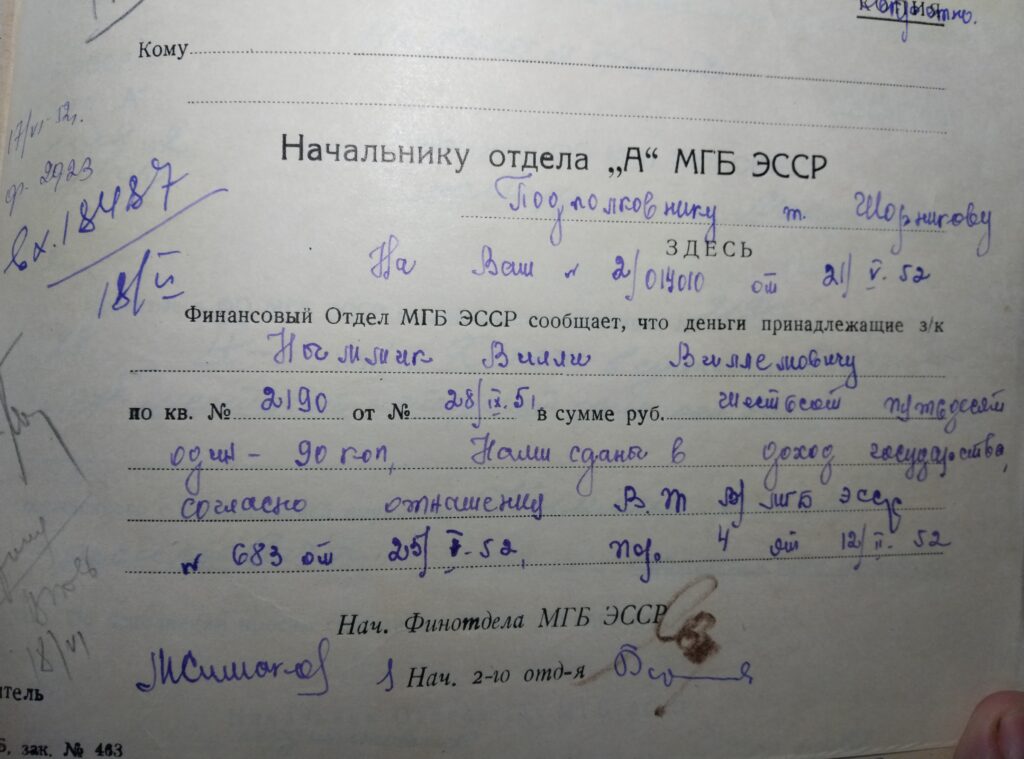 Кому
17/VI-52г.
ф. 2923
вх. 18487
18/VI
Начальнику отдела „А“ МГБ ЭССР
Подполковнику т. Шорникову
ЗДЕСЬ
На Ваш № 2/014010 от 21/V.52
Финансовый Отдел МГБ ЭССР сообщает, что деньги принадлежащие з/к
Ныммик Вилли Виллемовичу
по кв. № 2190 от № 28/IX.51 в сумме руб. шестьсот пятьдесят
один - 90 коп, Нами сданы в доход государства,
согласно отнашения В.Т В/ МГБ ЭССР
№ 683 от 25/ .52, 4 от 12/ . 52
Нач. Финотдела МГБ ЭССР
18/VI
Нач. 2-го отд-я
итель
Б, зак. № 463